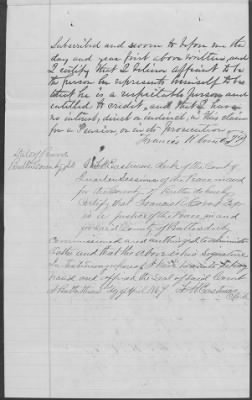 Subscribed and sworn to before me the
day and year first above written, and
I certify that I believe affiant to be
the person he represents himself to be
that he is a respectable person and
entitled to credit, and that I have
no interest, direct or indirect, in this claim
for a Pension or in its prosecution
Francis
State of Penna
Butler County
Clerk of the Court of
Quarter Sessions of the Peace in and
for the County of Butler do hereby
Certify that Francis Esqr
is a Justice of the Peace, in and
for said County of Butler duly
Commissioned and authorized to administer
Oaths and that his above is his Signature
In testimony whereof I have hereunto set my
hand and affixed the Seal of said Court
at Butler this day of April 1867
Clerk